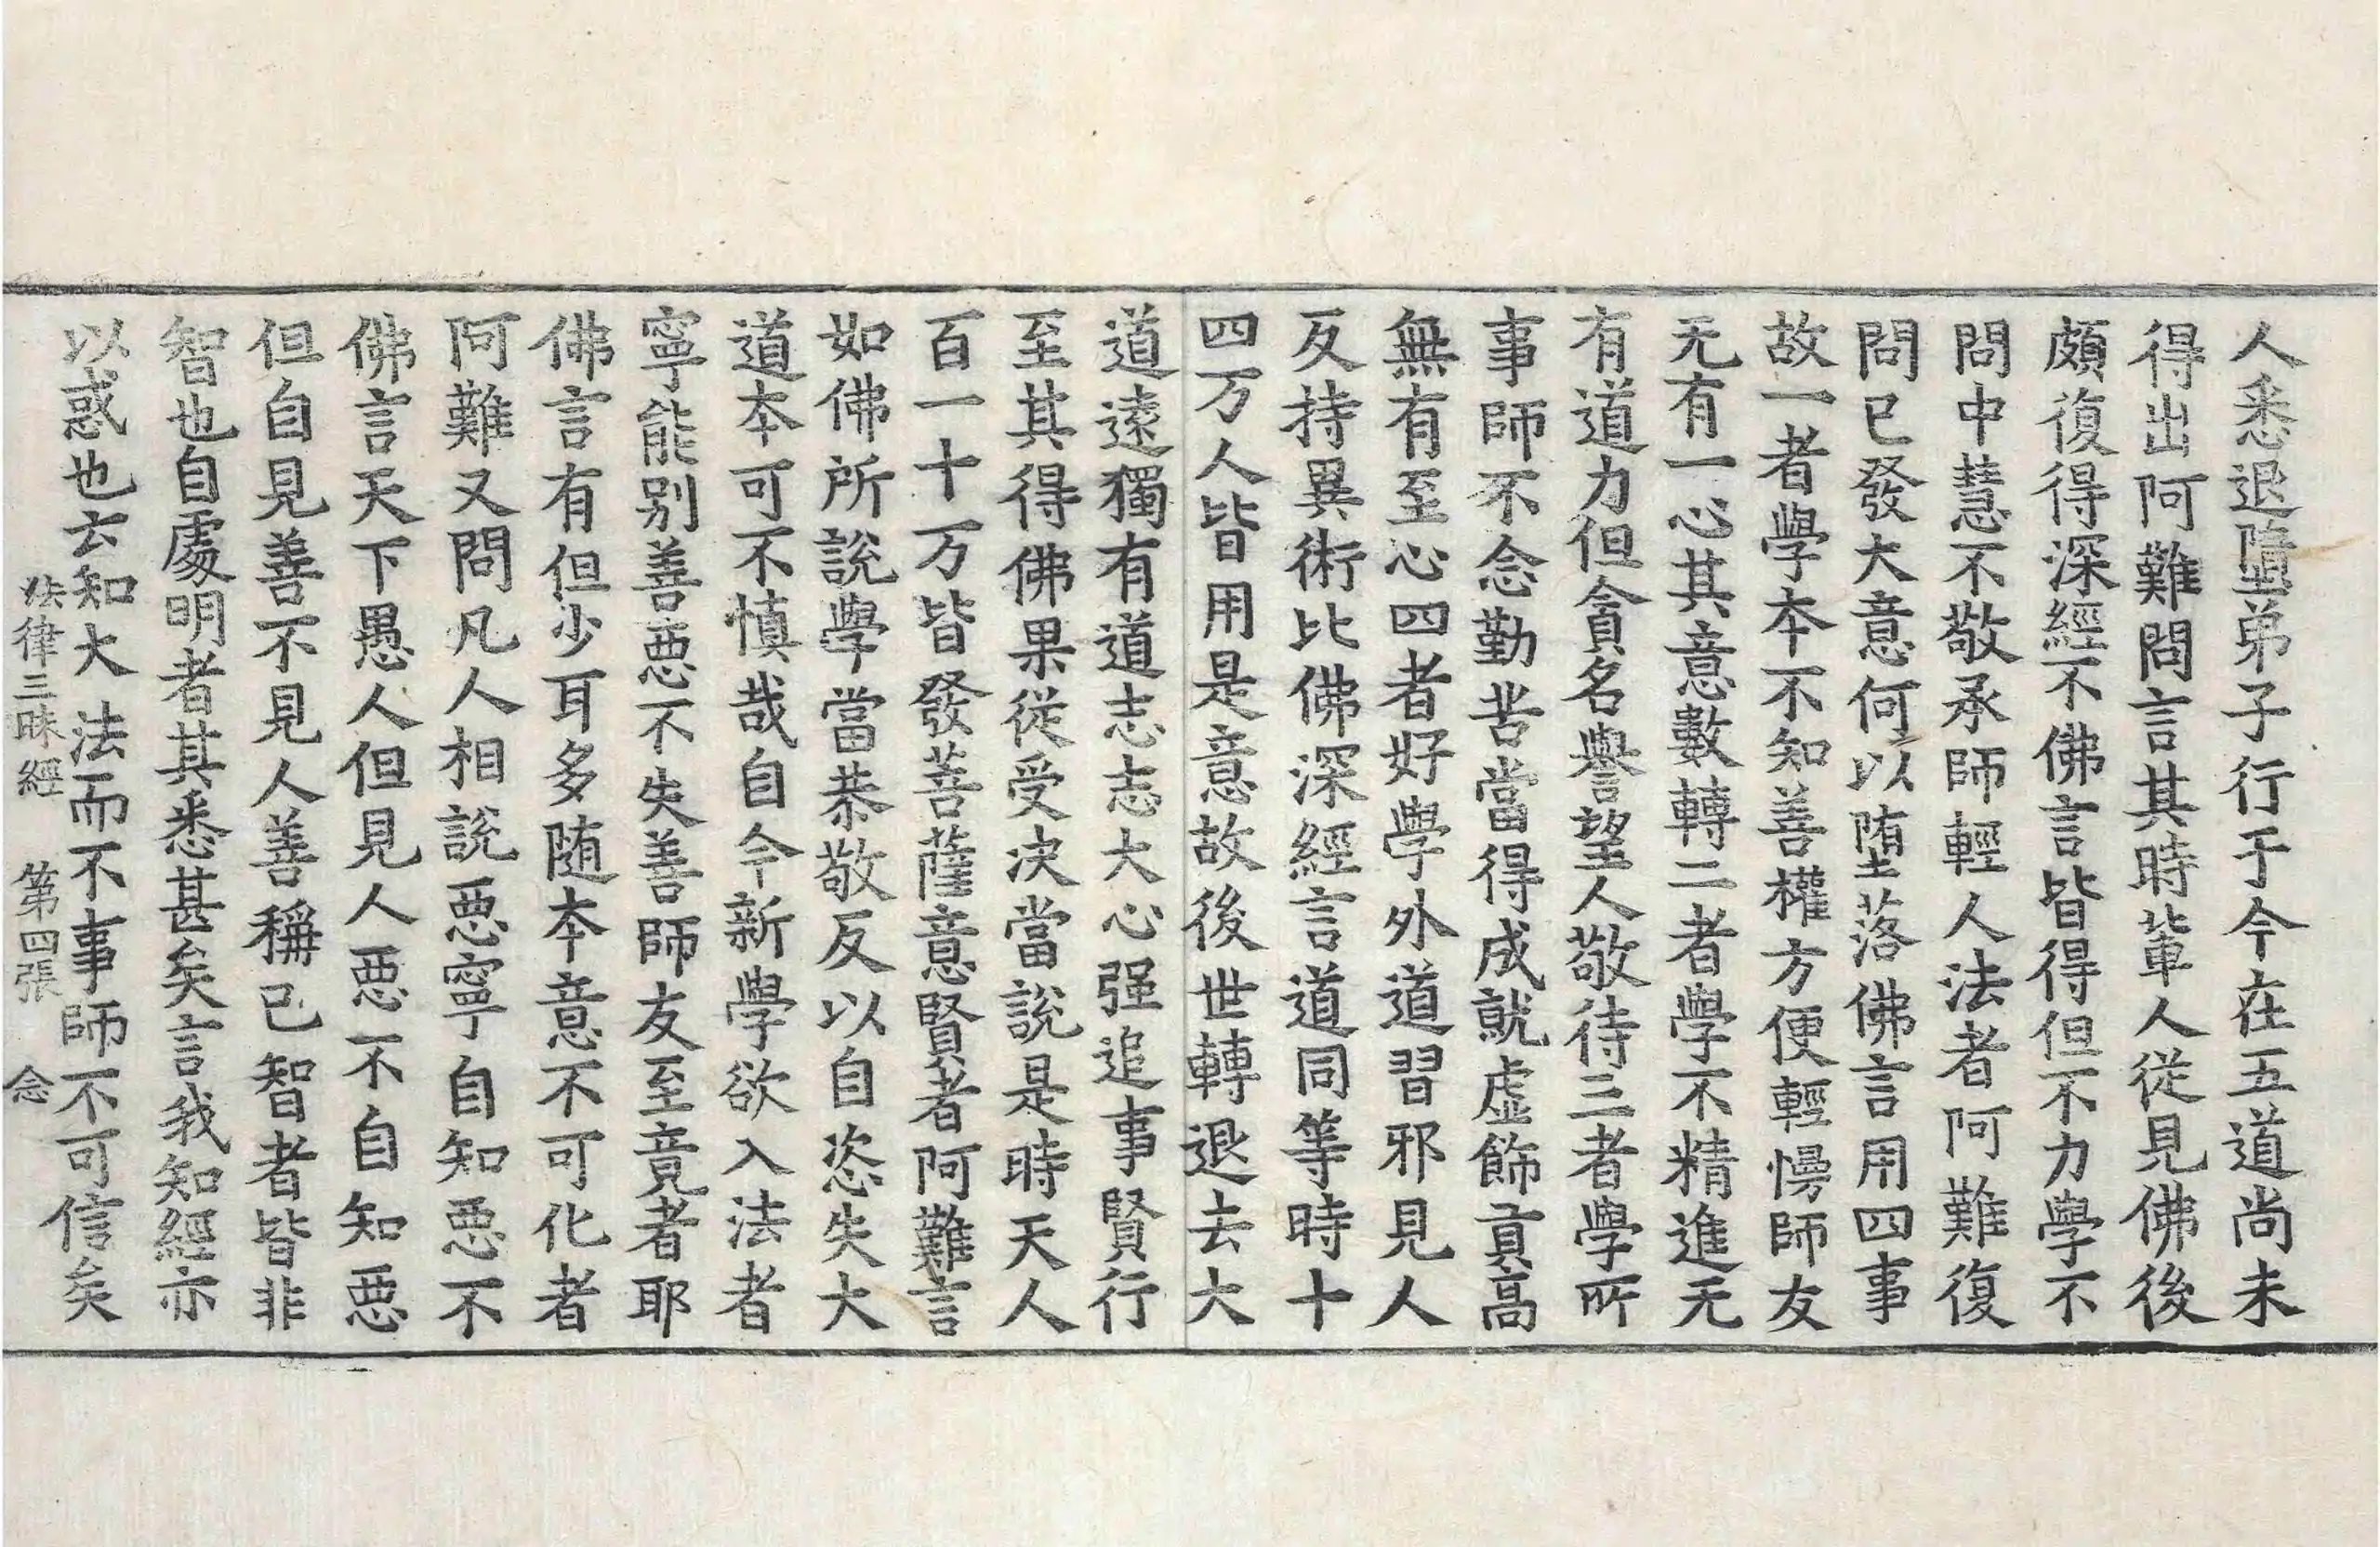 人悉退墮弟子行于今在五道尚未
得出阿難問言其時輩人從見佛後
頗復得深經不佛言皆得但不力學不
問中慧不敬承師輕人法者阿難復
問已發大意何以堕落佛言用四事
故一者學本不知善權方便輕慢師友
无有一心其意數轉二者學不精進无
有道力但貪名譽望人敬待三者學所
事師不念勤苦當得成就虛飾貢高
無有至心四者好學外道習邪見人
反持異術比佛深經言道同等時十
四万人皆用是意故後世轉退去大
道遠獨有道志志大心强追事賢行
至其得佛果從受决當說是時天人
百一十万皆發菩薩意賢者阿難言
如佛所說學當恭敬反以自恣失大
道本可不慎哉自今新學欲入法者
寧能别善惡不失善師友至竟者耶
佛言有但少耳多随本意不可化者
阿難又問凡人相說惡寧自知惡不
佛言天下愚人但見人惡不自知惡
但自見善不見人善稱已智者皆非
智也自處明者其悉甚矣言我知經亦
以惑也去知大法而不事師不可信矣
法律三昧經 第四張 念